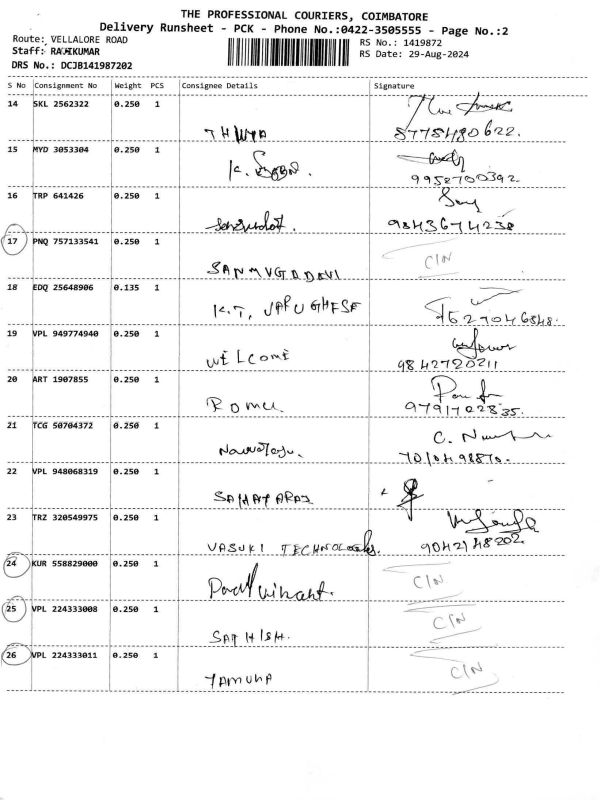 THE PROFESSIONAL COURIERS, COIMBATORE
Delivery Runsheet - PCK - Phone No.:0422-3505555 - Page No.:2
Route: VELLALORE ROAD
RS No.: 1419872
Staff: RAJKUMAR
RS Date: 29-Aug-2024
DRS No.: DCJB141987202
S No Consignment No Weight PCS Consignee Details Signature
14 SKL 2562322 0.250 1
8775480622.
15 MYD 3053304 0.250 1
K.
9952700392
16 TRP 641426 0.250 1
9843674238
17 PNQ 757133541 0.250 1 C/N
SANMUGADEVI
18 EDQ 25648906 0.135 1
K.T. VARUGHESE
7627046848.
19 VPL 949774940 0.250 1
WELCOME 9842720211
20 ART 1907855 0.250 1
9791702835.
21 TCG 50704372 0.250 1
22 VPL 948068319 0.250 1
23 TRZ 320549975 0.250 1
VASUKI TECHNOLOGIES. 9042148202
24 KUR 558829000 0.250 1 C/N
25 VPL 224333008 0.250 1 C/N
SATHISH.
26 VPL 224333011 0.250 1 C/N
YAMUNA